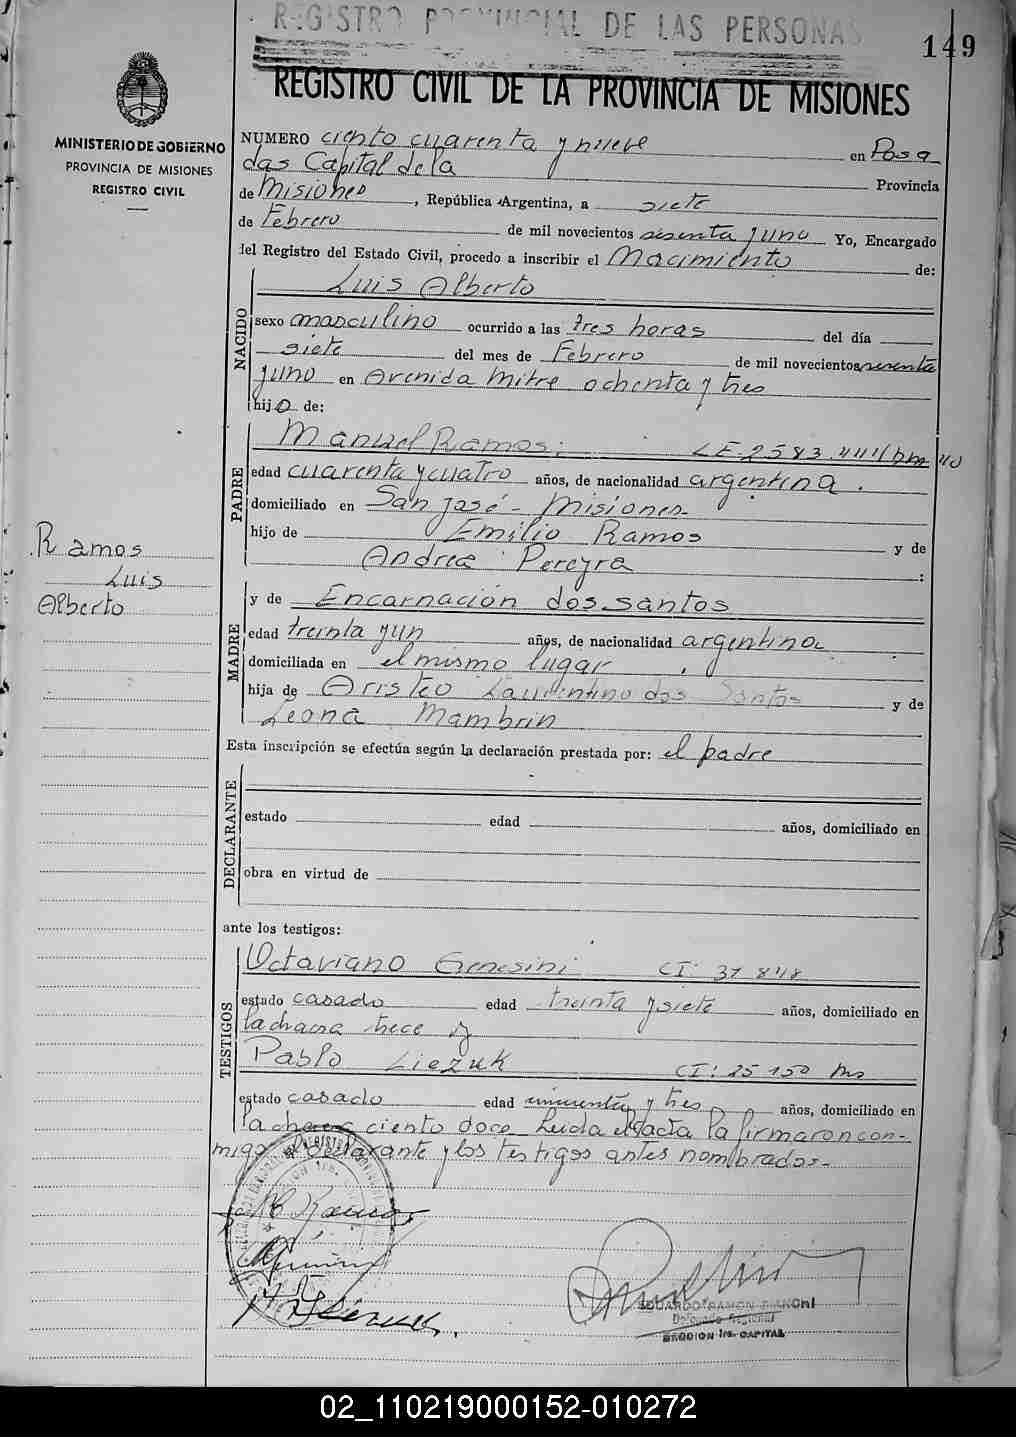 REGISTRO PROVINCIAL DE LAS PERSONAS
149
REGISTRO CIVIL DE LA PROVINCIA DE MISIONES
MINISTERIO DE GOBIERNO
PROVINCIA DE MISIONES
REGISTRO CIVIL
NUMERO ciento cuarenta y nueve en Posa
das Capital de la Provincia
de Misiones, República Argentina, a siete
de Febrero de mil novecientos sesenta y uno Yo, Encargado
del Registro del Estado Civil, procedo a inscribir el Nacimiento de:
NACIDO
Luis Alberto
sexo masculino ocurrido a las tres horas del día
siete del mes de Febrero de mil novecientos sesenta
y uno en Avenida Mitre ochenta y tres
hijo de:
PADRE
Manuel Ramos: LE. 2583.
edad cuarenta y cuatro años, de nacionalidad argentina.
domiciliado en San José - Misiones
hijo de Emilio Ramos y de
Andrea Pereyra :
Ramos
Luis
Alberto
MADRE
y de Encarnación dos santos
edad treinta y un años, de nacionalidad argentina
domiciliada en el mismo lugar
hija de Aristeo Laurentino dos Santos y de
Leona Mambrin
Esta inscripción se efectúa según la declaración prestada por: el padre
DECLARANTE
estado edad años, domiciliado en
obra en virtud de
ante los testigos:
TESTIGOS
Octaviano Genesini CI: 37
estado casado edad treinta y siete años, domiciliado en
la chacra trece y
Pablo Liezuk CI: 25 150 Ms
estado casado edad cincuenta y tres años, domiciliado en
la chacra ciento doce Leida el acta la firmaron con-
migo declarante y los testigos antes nombrados-
Ramos
EDUARDO RAMON BIANCHI
Delegado Regional
SECCION 1ra. CAPITAL
02_110219000152-010272